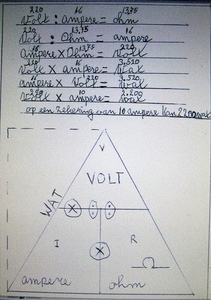 220 16 13,75
Volt : ampere = ohm
220 13,75 16
Volt : Ohm = ampere
16 13,75 220
ampere x Ohm = Volt
220 16 3,520
Volt x ampere = Wat
16 220 3,520
ampere x Volt = Wat
220 10 2.200
Volt x ampere = wat
op een zekering van 10 ampere kan 2200 wat
V
VOLT
WAT
I
R
Ω
ampere
ohm